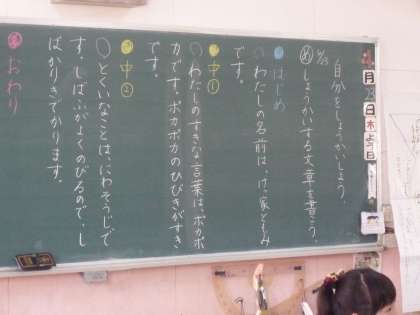 月
日
木よう日
自分をしょうかいしよう。
め しょうかいする文章を書こう。
はじめ
わたしの名前は、ともみ
です。
中①
わたしのすきな言葉は、ポカポ
カです。ポカポカのひびきがすき
です。
中②
とくいなことは、にわそうじで
す。しばふがよくのびるので、し
ばかりきでかります。
おわり